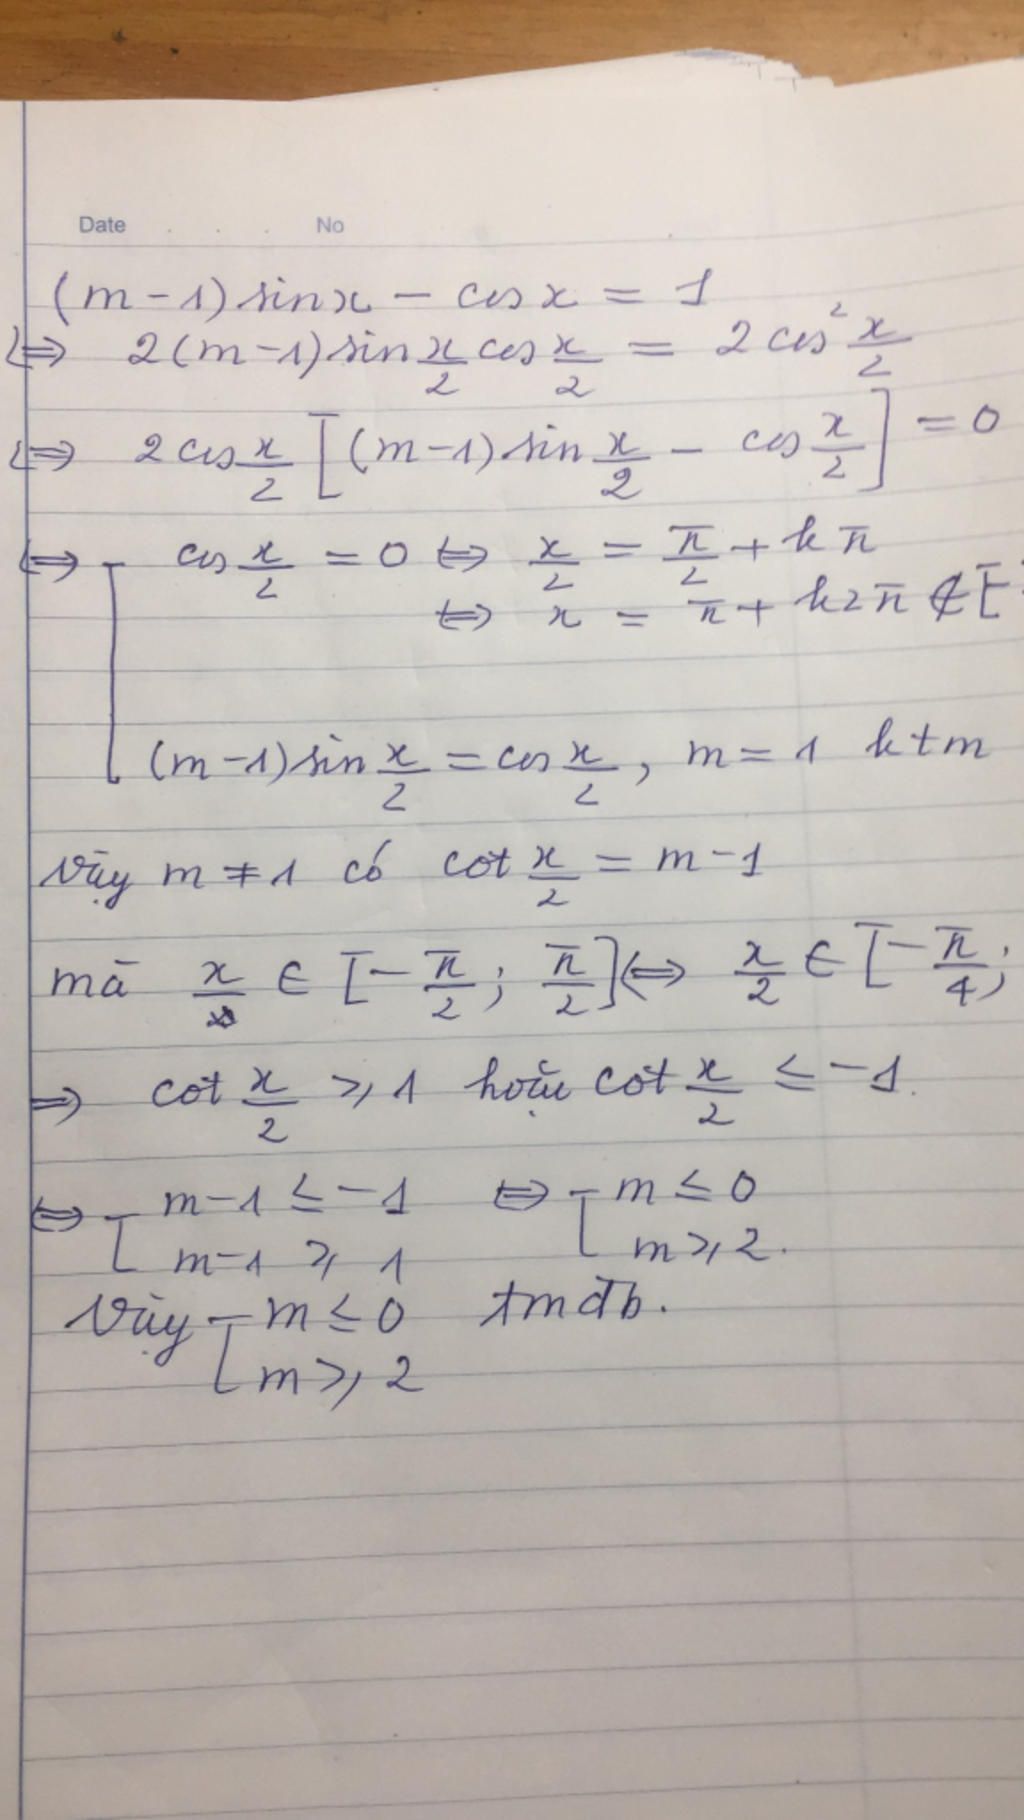 Date . . . No
(m-1) sin x - cos x = 1
⇔ 2(m-1) sin x/2 cos x/2 = 2 cos² x/2
⇔ 2 cos x/2 [(m-1) sin x/2 - cos x/2] = 0
⇔ [ cos x/2 = 0 ⇔ x/2 = π/2 + kπ
⇔ x = π + k2π ∉ [-
(m-1) sin x/2 = cos x/2, m = 1 ktm
Vậy m ≠ 1 có cot x/2 = m-1
mà x ∈ [-π/2; π/2] ⇔ x/2 ∈ [-π/4;
⇒ cot x/2 ≥ 1 hoặc cot x/2 ≤ -1.
⇔ [ m-1 ≤ -1 ⇔ [ m ≤ 0
m-1 ≥ 1 m ≥ 2.
Vậy [ m ≤ 0 tmđb.
m ≥ 2